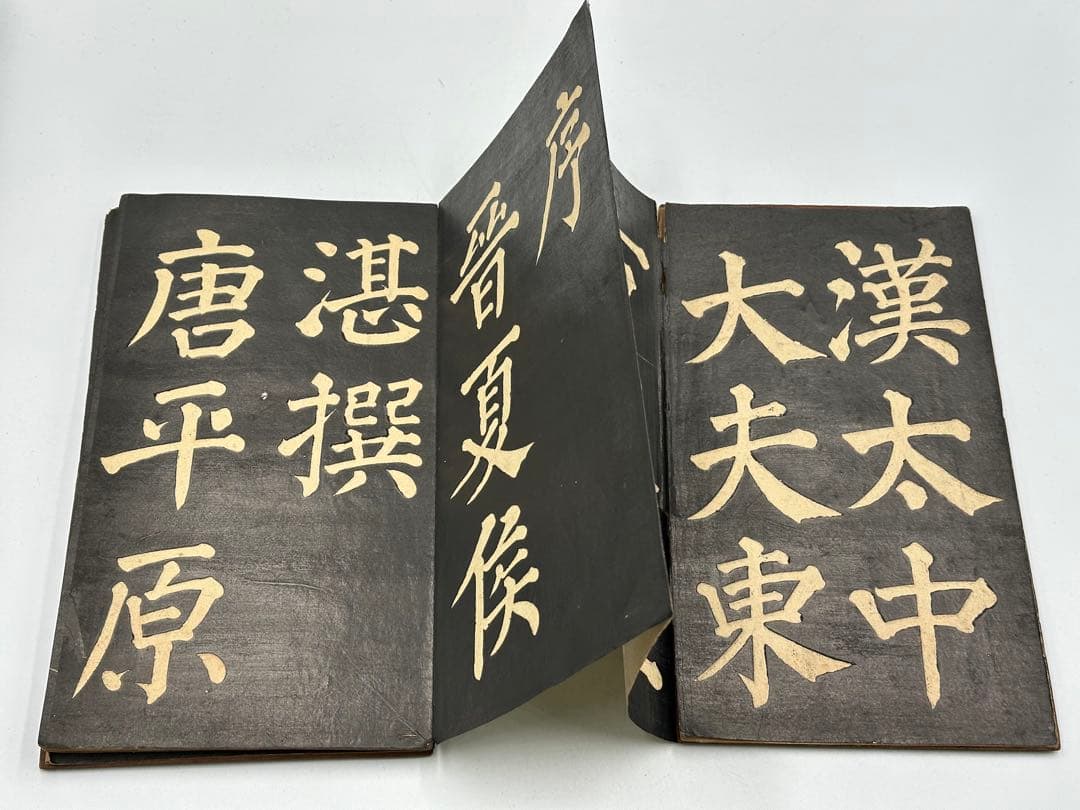 漢太中
大夫東
序
晉夏侯
湛撰
唐平原